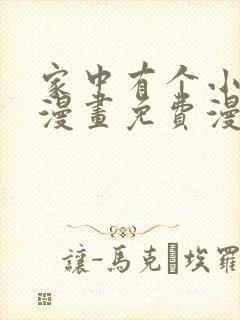 家中有个小
漫畫免費漫
讓-馬克·埃羅